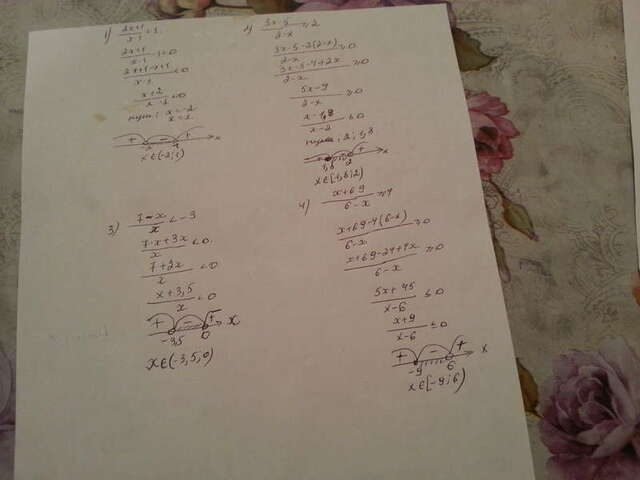 1) (2x+1)/(x-1) < 1
(2x+1)/(x-1) - 1 < 0
(2x+1-x+1)/(x-1) < 0
(x+2)/(x-1) < 0
нули: x = -2
x = 1
+ - + x
-2 1
x∈(-2;1)
2) (3x-5)/(2-x) ≥ 2
(3x-5-2(2-x))/(2-x) ≥ 0
(3x-5-4+2x)/(2-x) ≥ 0
(5x-9)/(2-x) ≥ 0
(x-1,8)/(x-2) ≤ 0
нули: 2; 1,8
+ - + x
1,8 2
x∈[1,8;2)
3) (7-x)/x < -3
(7-x+3x)/x < 0
(7+2x)/x < 0
(x+3,5)/x < 0
+ - + x
-3,5 0
x∈(-3,5,0)
4) (x+69)/(6-x) ≥ 4
(x+69-4(6-x))/(6-x) ≥ 0
(x+69-24+4x)/(6-x) ≥ 0
(5x+45)/(x-6) ≤ 0
(x+9)/(x-6) ≤ 0
+ - + x
-9 6
x∈[-9;6)